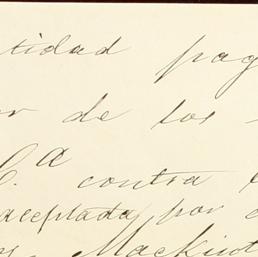 tidad pag
or de los
C.ª contra
aceptada por
Mackint